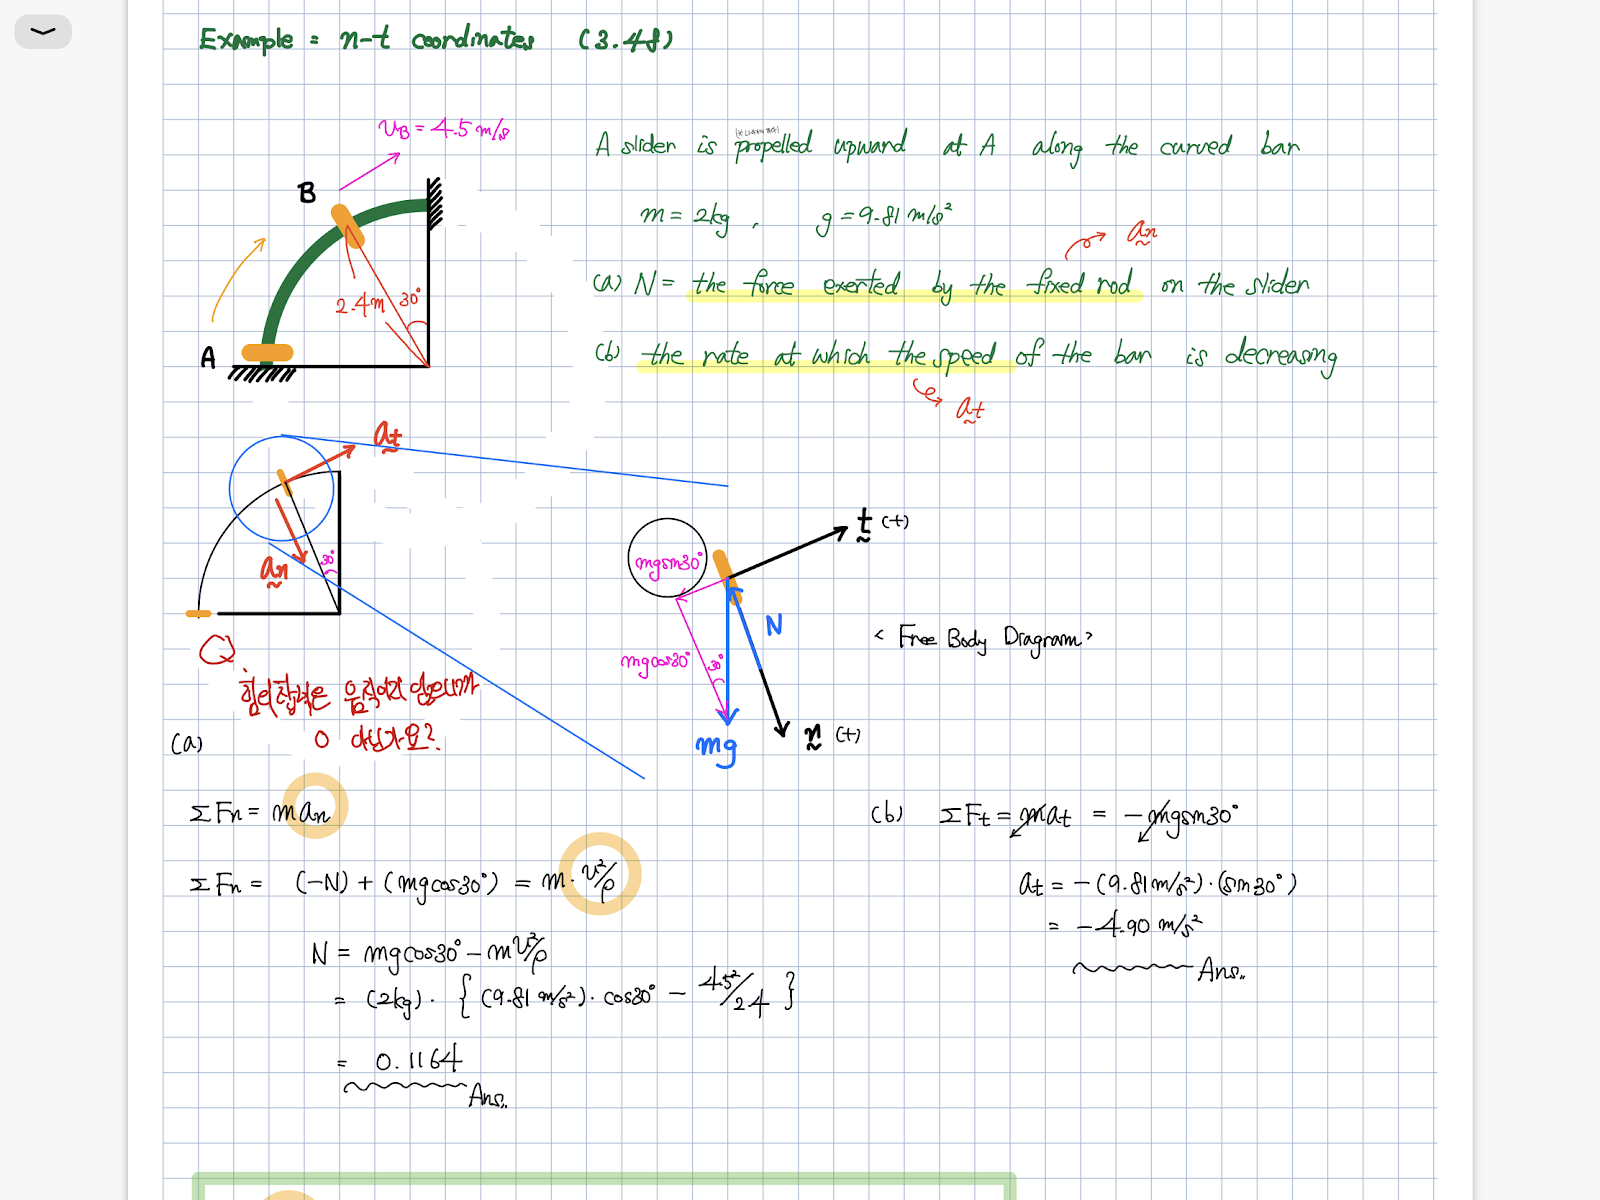 Example = n-t coordinates (3.48)
v_B = 4.5 m/s
B
2.4m
30°
A
A slider is propelled upward at A along the curved bar
m = 2kg , g = 9.81 m/s²
a_n
(a) N = the force exerted by the fixed rod on the slider
(b) the rate at which the speed of the bar is decreasing
a_t
a_t
a_n
30°
t (+)
mgsin30°
N
mgcos30°
30°
mg
n (+)
< Free Body Diagram >
Q.
힘의 합력은 움직이지 않으니까
0 아닌가요?
(a)
ΣFn = man
ΣFn = (-N) + (mgcos30°) = m · v²/ρ
N = mgcos30° - mv²/ρ
= (2kg) · { (9.81 m/s²) · cos30° - 4.5²/2.4 }
= 0.1164
Ans..
(b) ΣFt = mat = -mgsin30°
at = -(9.81m/s²) · (sin30°)
= -4.90 m/s²
Ans..